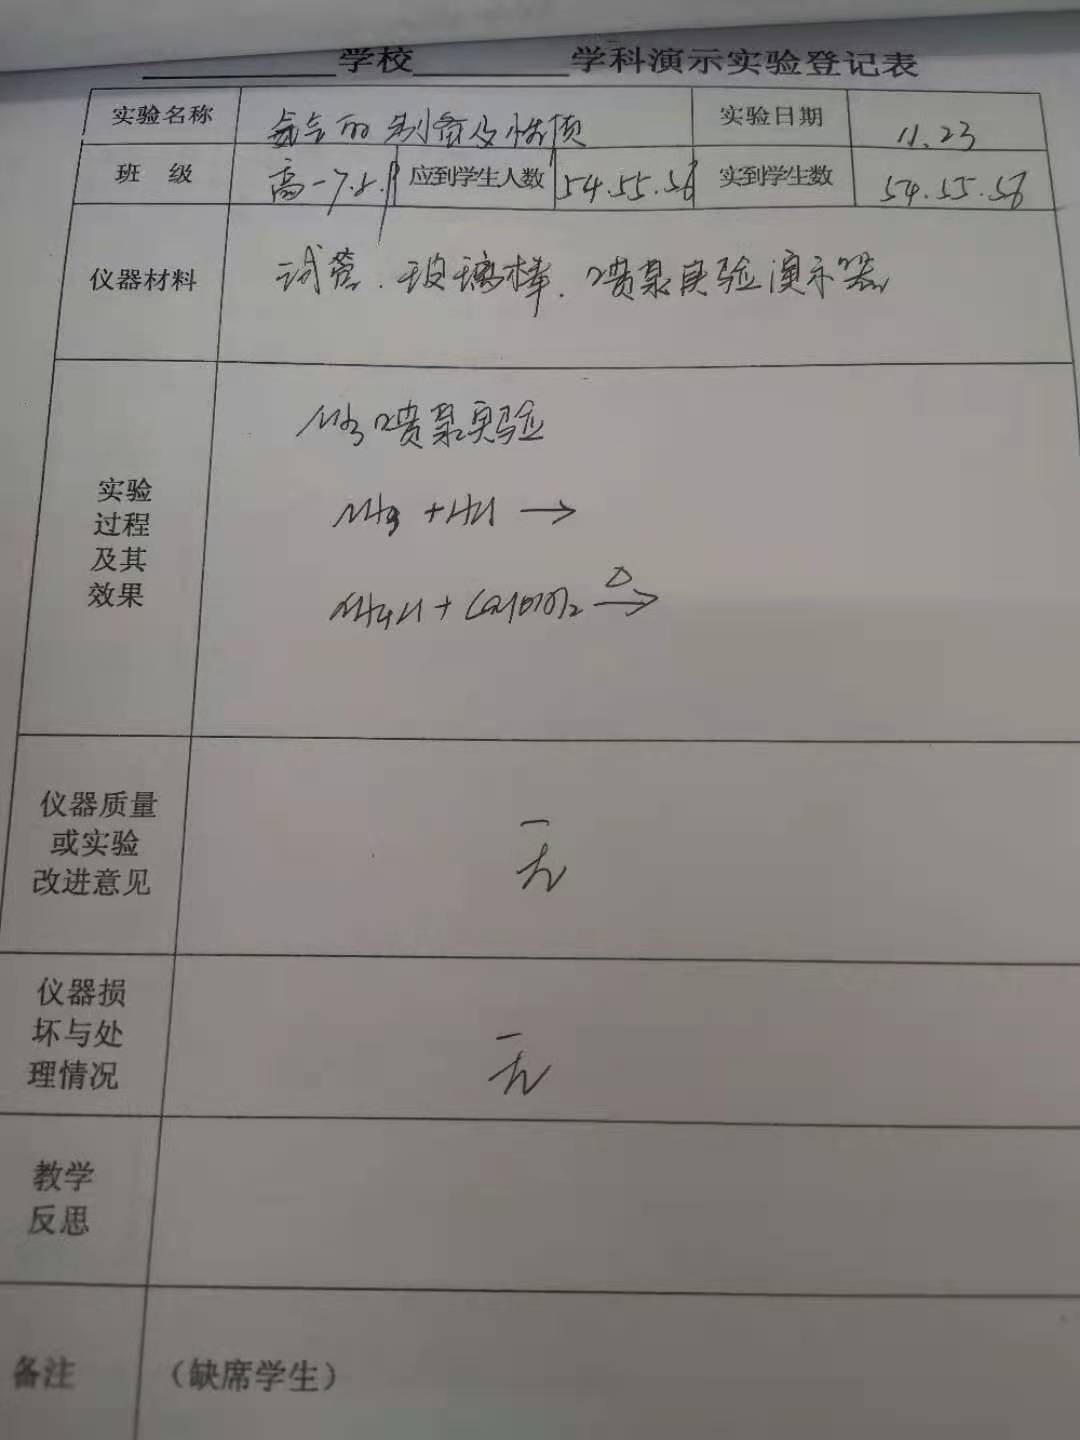 ______学校______学科演示实验登记表
实验名称 氨气的制备及性质 实验日期 11.23
班 级 高一7.8.9 应到学生人数 54.55.56 实到学生数 54.55.56
仪器材料 试管.玻璃棒.喷泉实验演示器
NH3喷泉实验
NH3+HCl→
实验
过程
及其
效果
NH4Cl+Ca(OH)2 △→
仪器质量
或实验
改进意见
无
仪器损
坏与处
理情况
无
教学
反思
备注 (缺席学生)